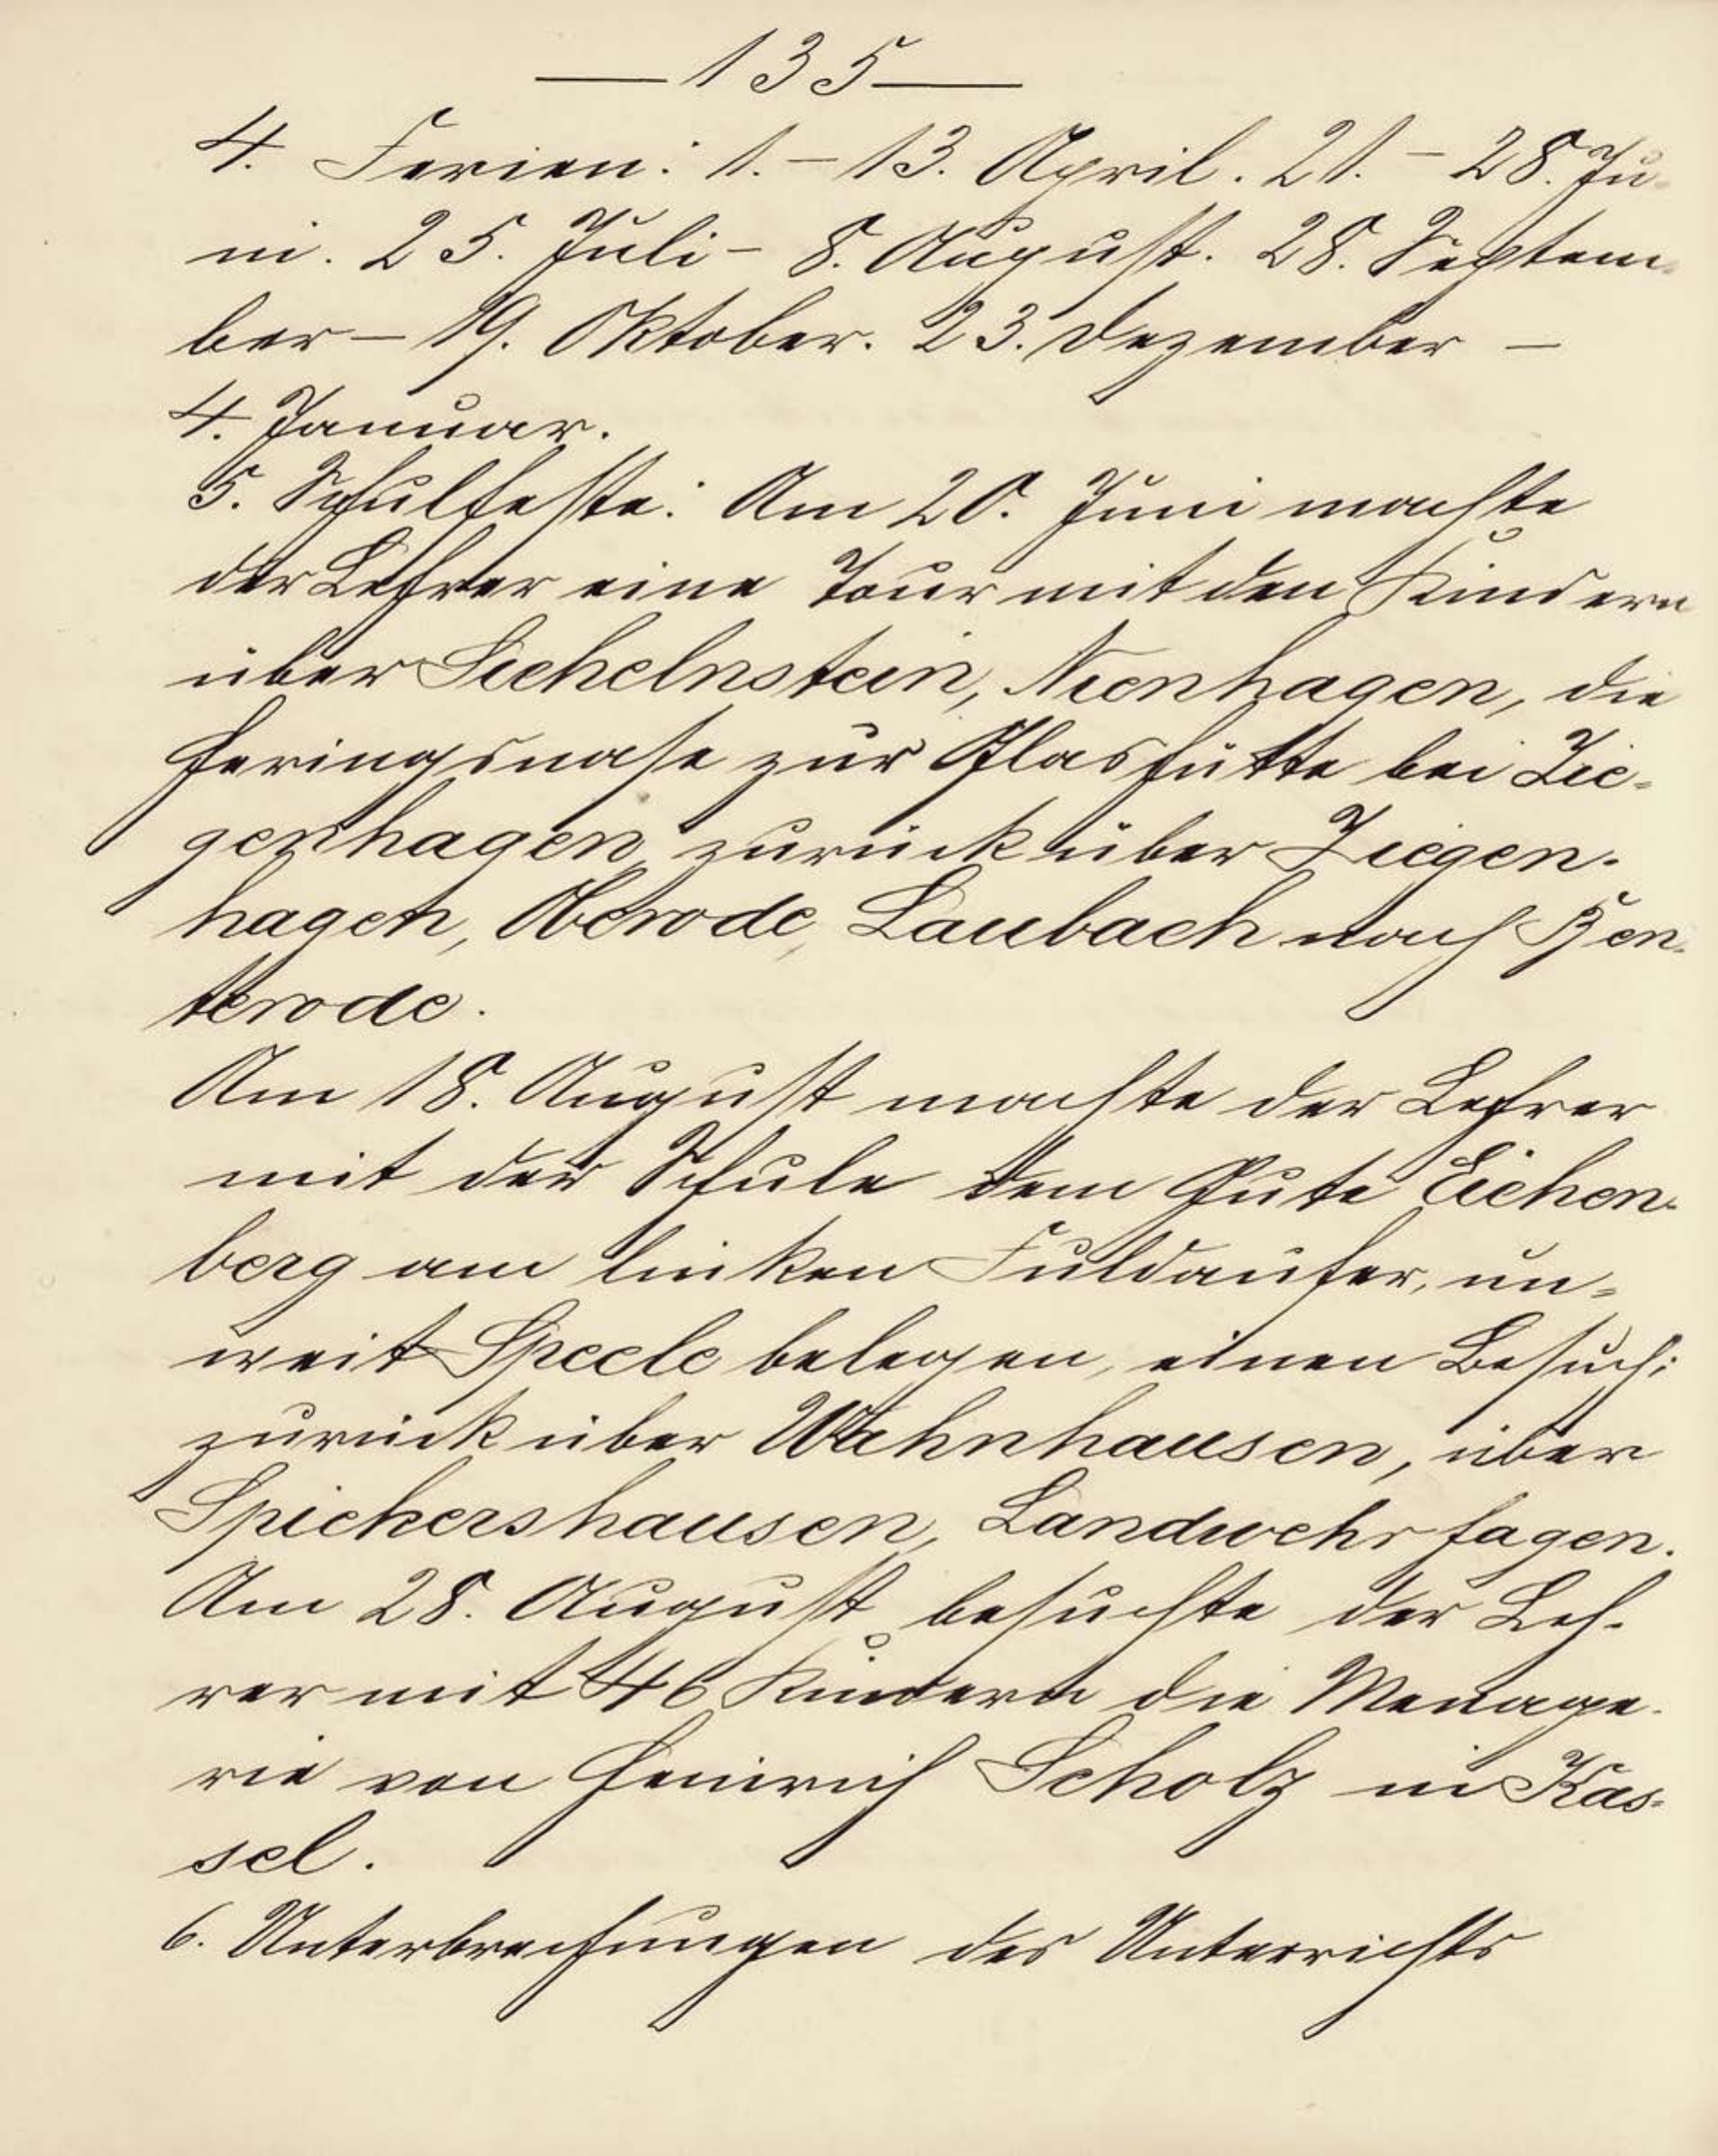 —135—
4. Ferien: 1. – 13. April. 21. – 28. Ju-
ni. 25. Juli – 8. August. 28. Septem-
ber – 19. Oktober. 23. Dezember –
4. Januar.
5. Schulfeste: Am 20. Juni machte
der Lehrer eine Tour mit den Kindern
über Sichelnstein, Nienhagen, die
Heringsnase zur Glashütte bei Zie-
genhagen, zurück über Ziegen-
hagen, Oberode, Laubach nach Ben-
terode.
Am 18. August machte der Lehrer
mit der Schule dem Gute Eichen-
berg am linken Fuldaufer, un-
weit Speele belegen, einen Besuch;
zurück über Wahnhausen, über
Spiekershausen, Landwehrhagen.
Am 28. August besuchte der Leh-
rer mit 46 Kindern die Menage-
rie von Heinrich Scholz in Kas-
sel.
6. Unterbrechungen des Unterrichts